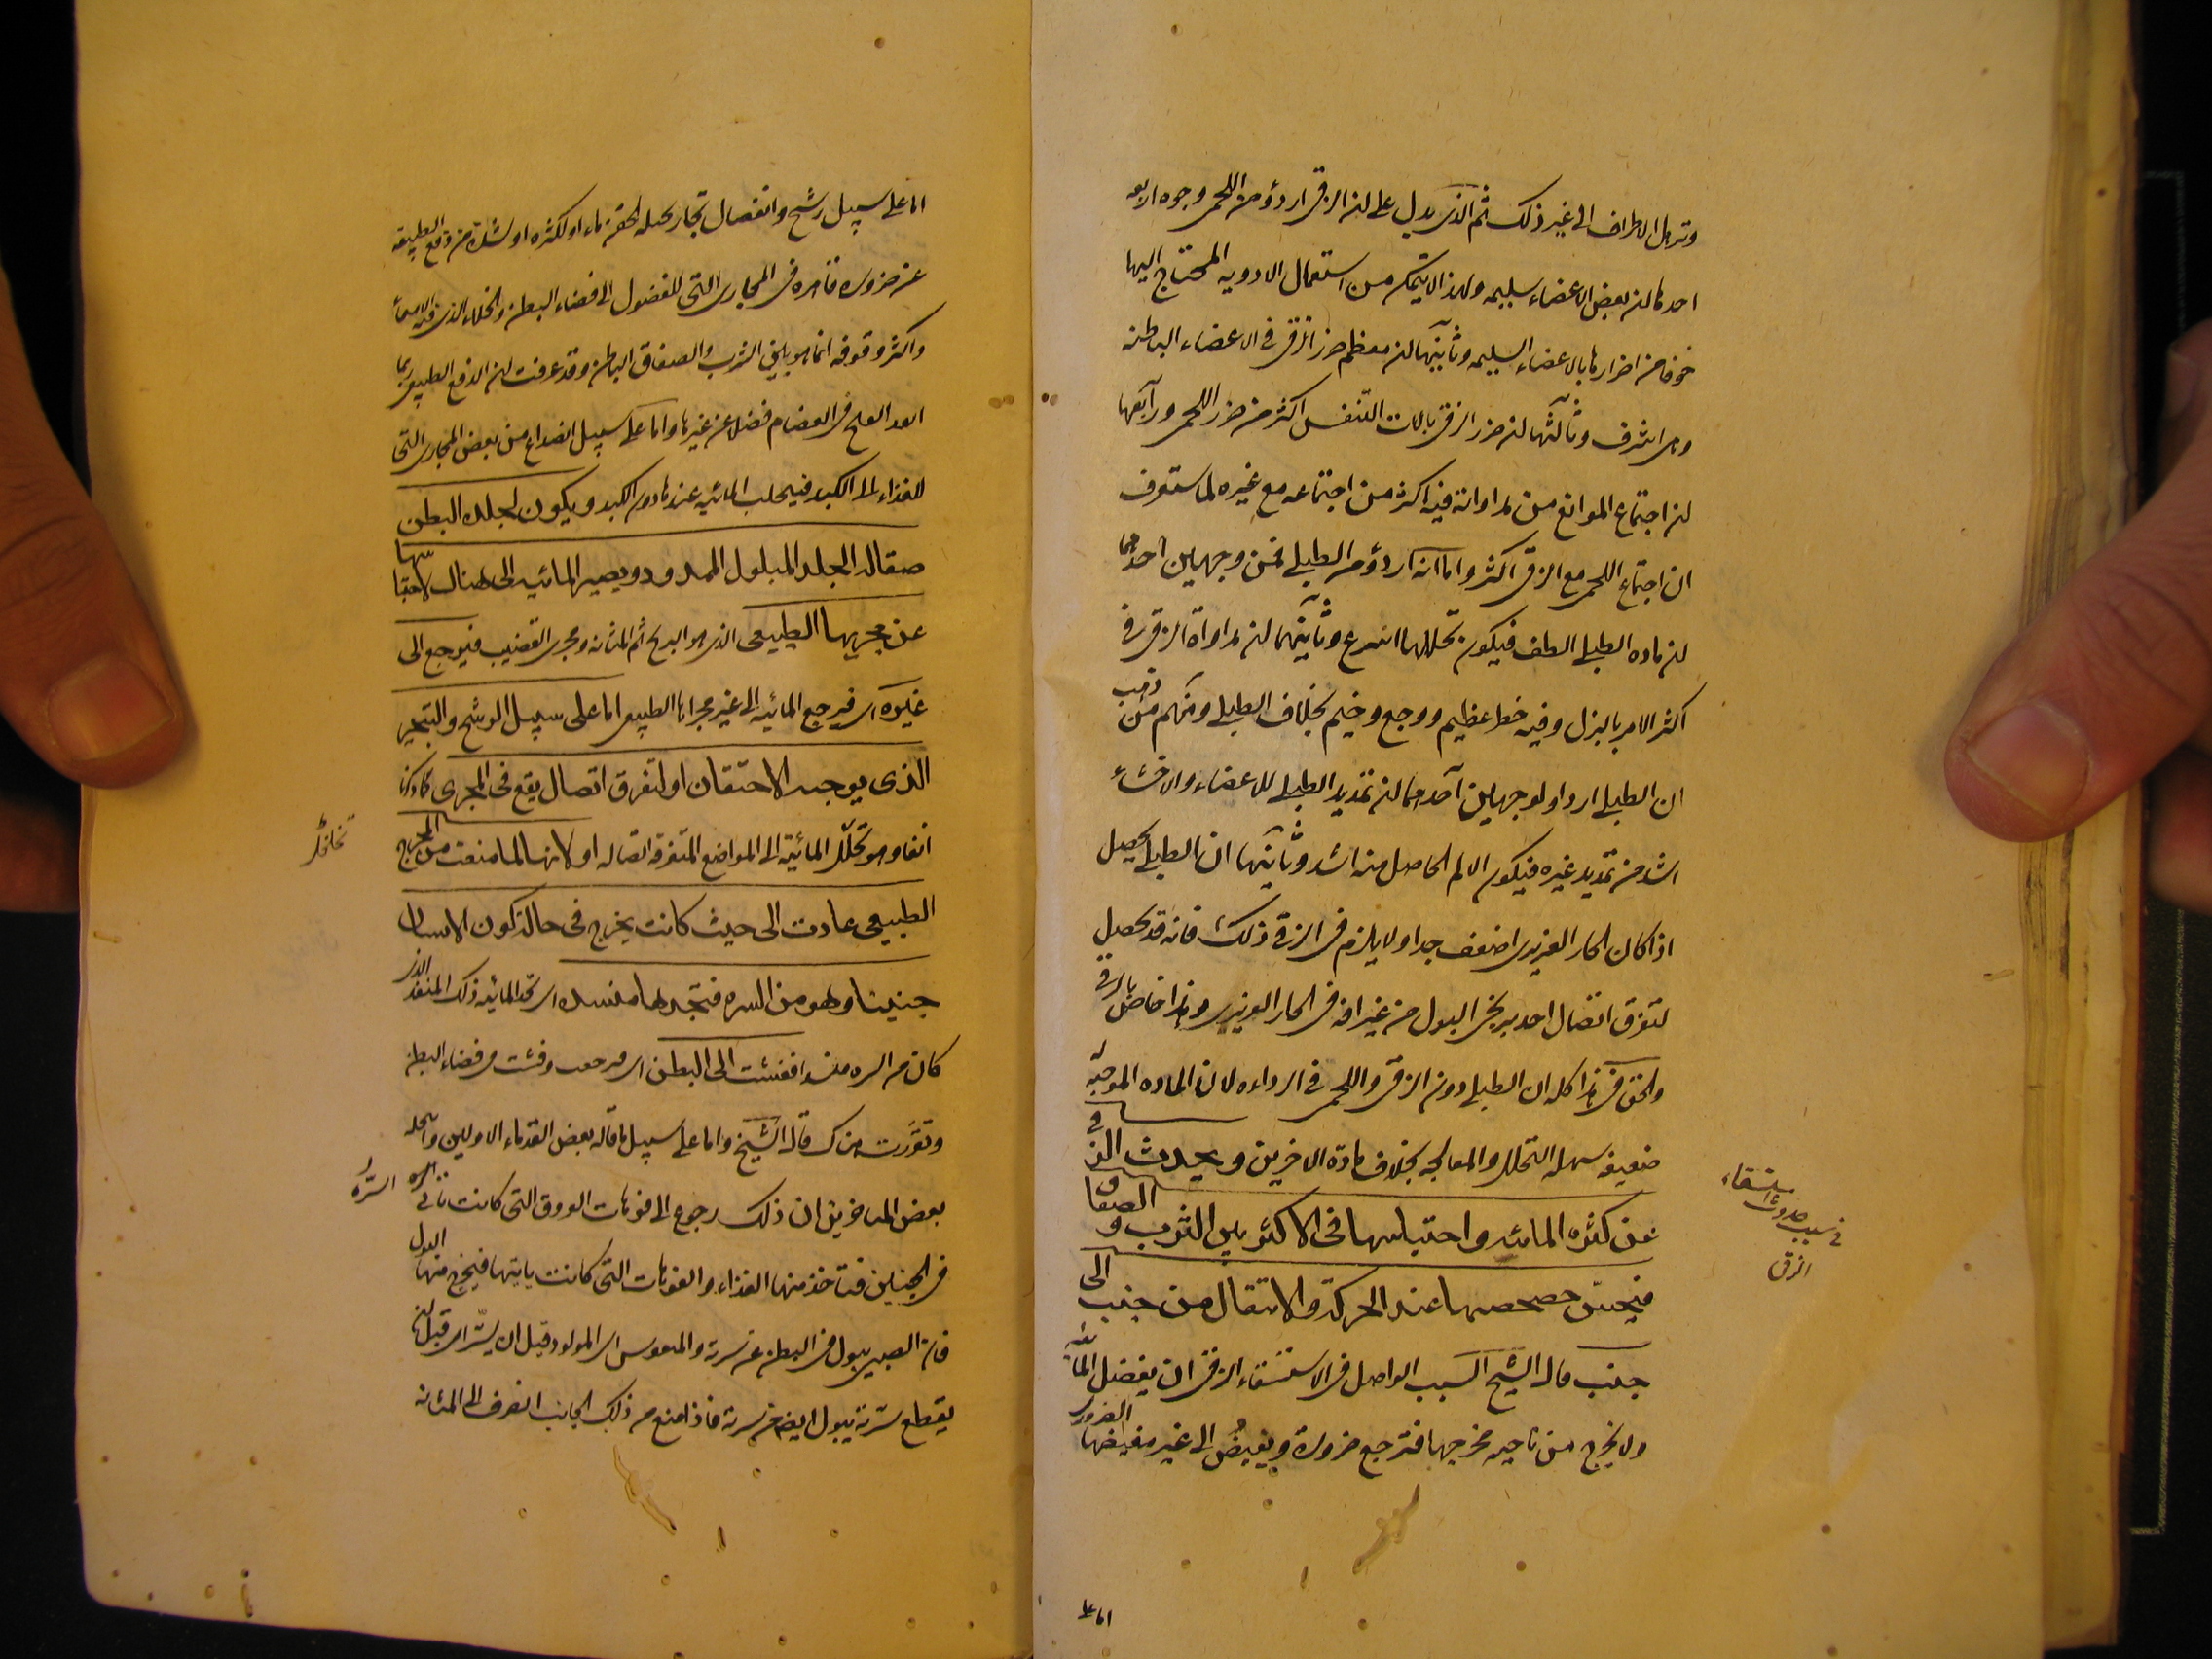 وترهل الاطراف الى غير ذلك ثم الذى يدل على ان الزقى اردؤ من اللحمى وجوه اربعه
احدها ان بعض الاعضاء سليمه ولهذا لا يتمكن من استعمال الادويه المحتاج اليها
خوفا من اضرارها بالاعضاء السليمه وثانيها ان معظم ضرر الزقى فى الاعضاء الباطنه
وهى اشرف وثالثها ان ضرر الزقى بالات التنفس اكثر من ضرر اللحمى ورابعها
ان اجتماع الموانع من مداواته فيه اكثر من اجتماعه مع غيره لما ستعرف
ان اجتماع اللحمى مع الزقى اكثر واما انه اردؤ من الطبلى فمن وجهين احدهما
ان ماده الطبلى الطف فيكون تحللها اسرع وثانيهما ان مداواة الزقى فى
اكثر الامر بالبزل وفيه خطر عظيم ووجع وخيم بخلاف الطبلى ومنهم من ذهب
ان الطبلى اردا لوجهين احدهما ان تمديد الطبلى للاعضاء والاحشاء
اشد من تمديد غيره فيكون الالم الحاصل منه اشد وثانيها ان الطبلى يحصل
اذا كان الحار الغريزى اضعف جدا ولا يلزم فى الزقى ذلك فانه قد يحصل
لتفرق اتصال احد بربخى البول من غير افه فى الحار الغريزى وهذا خاص بالزقى
والحق فى هذا كله ان الطبلى دون الزقى واللحمى فى الرداءه لان الماده الموجبه
ضعيفه سهله التحلل والمعالجه بخلاف مادة الاخرين ويحدث الزقى
عن كثره المائيه واحتباسها فى الاكثر بين الثرب والصفاق
فيحس خضخضها عند الحركة والانتقال من جنب الى
جنب قال الشيخ السبب الواصل فى الاستسقاء الزقى ان يفضل المائيه
ولا يخرج من ناحيه مخرجها فترجع ضرورة ويفيض الى غير مفيضها الضرورى
فى سبب حدوث استسقاء
الزقى
اما على
اما على سبيل رشح وانفصال بخار يحيله الحقن ماء او لكثره او لشدة من دفع الطبيعه
عن ضروره قاهره فى المجارى التى للفضول الى فضاء البطن والخلاء الذى فيه الامعاء
واكثر وقوفه انما هو بين الثرب والصفاق الباطن وقد عرفت ان الدفع الطبيعى ربما
انفد القيح فى العظام فضلا عن غيرها واما على سبيل انصداع من بعض المجارى التى
للغذاء الى الكبد فيتحلب المائيه عندها دون الكبد ويكون لجلده البطن
صقاله الجلد المبلول الممدود ويصير المائيه الى هناك لاحتباسها
عن مجريها الطبيعى الذى هو البربخ ثم المثانه ومجرى القضيب فيرجع الى
غيره اى فيرجع المائيه الى غير مجراها الطبيعى اما على سبيل الرشح والتبخير
الذى يوجبه الاحتقان او لتفرق اتصال يقع فى المجرى كما ذكرنا
انفا وهو تحلل المائية الى المواضع المتفرقه اتصاله او لانها لما منعت من المخرج
الطبيعى عادت الى حيث كانت يخرج فى حالة كون الانسان
جنينا وهو من السره فتجدها منسده اى تجد المائيه ذلك المنفذ الذى
كان من السره منسدا ففشت الى البطن اى رجعت وفشت فى فضاء البطن
وتقررت هناك قال الشيخ واما على سبيل ما قاله بعض القدماء الاولين وانتحله
بعض المتاخرين ان ذلك رجوع الى فوهات العروق التى كانت تاتى السره
فى الجنين فتاخذ منها الغذاء والفوهات التى كانت ياتيها فيخرج منها البول
فان الصبى يبول فى البطن عن سرته والمنفوس اى المولود قبل ان يسر اى قبل ان
يقطع سرته يبول ايضا عن سرته فاذا امتنع من ذلك الجانب انصرف الى المثانه
السره